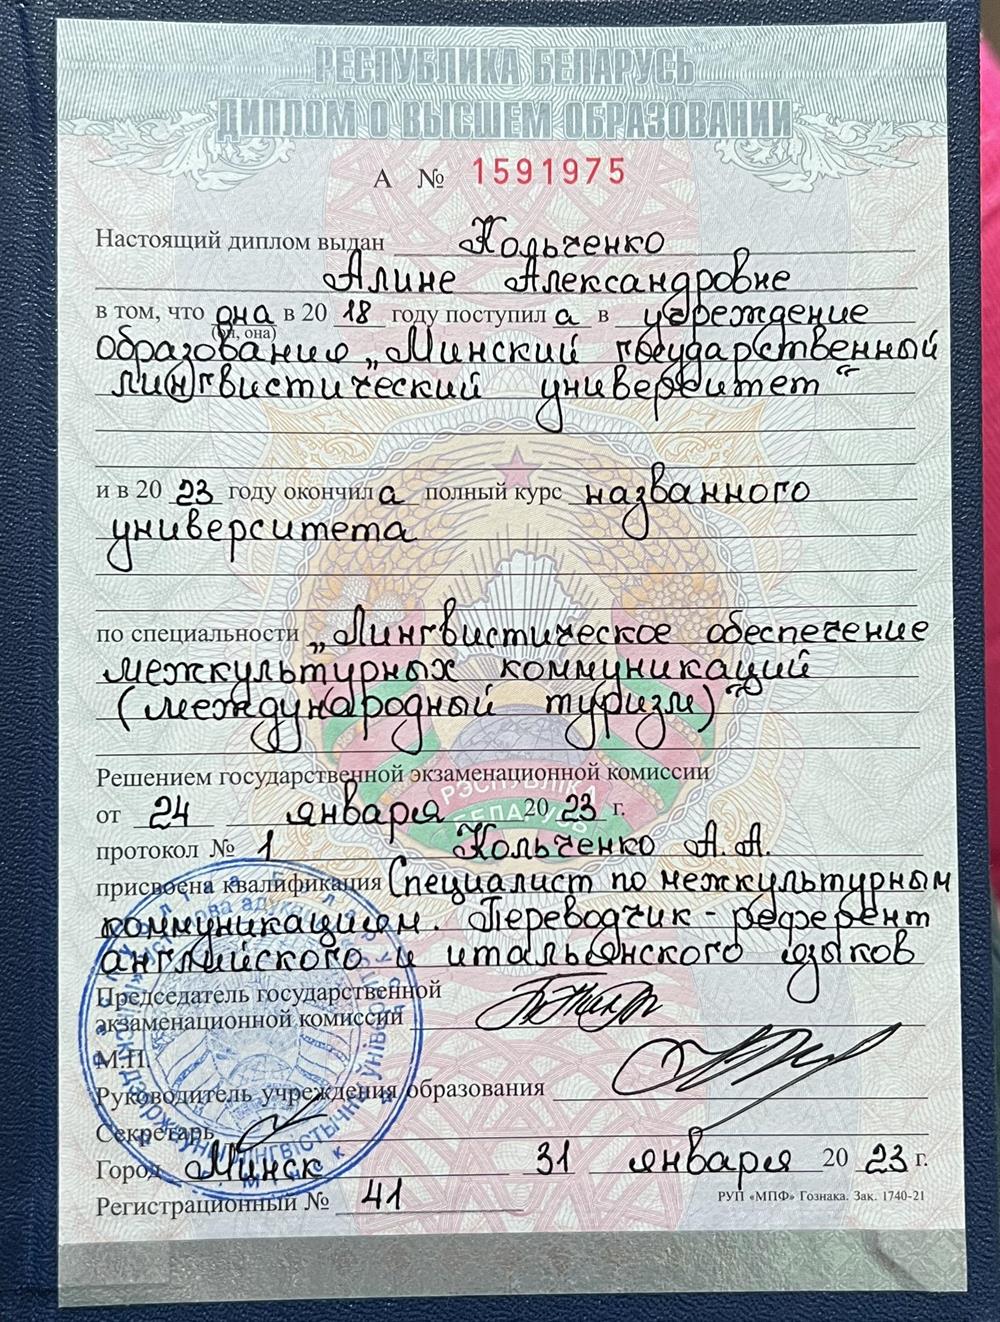 РЕСПУБЛИКА БЕЛАРУСЬ
ДИПЛОМ О ВЫСШЕМ ОБРАЗОВАНИИ
А № 1591975
Настоящий диплом выдан Кольченко
Алине Александровне
в том, что она в 20 18 году поступил а в учреждение
(он, она)
образования „Минский государственный
лингвистический университет“
и в 20 23 году окончил а полный курс названного
университета
по специальности „Лингвистическое обеспечение
межкультурных коммуникаций
(международный туризм)“
РЭСПУБЛІКА
БЕЛАРУСЬ
Решением государственной экзаменационной комиссии
от 24 января 20 23 г.
протокол № 1 Кольченко А.А.
присвоена квалификация Специалист по межкультурным
коммуникациям. Переводчик-референт
английского и итальянского языков
Председатель государственной
экзаменационной комиссии
М.П.
Руководитель учреждения образования
Секретарь
Город Минск 31 января 20 23 г.
Регистрационный № 41
РУП «МПФ» Гознака. Зак. 1740-21